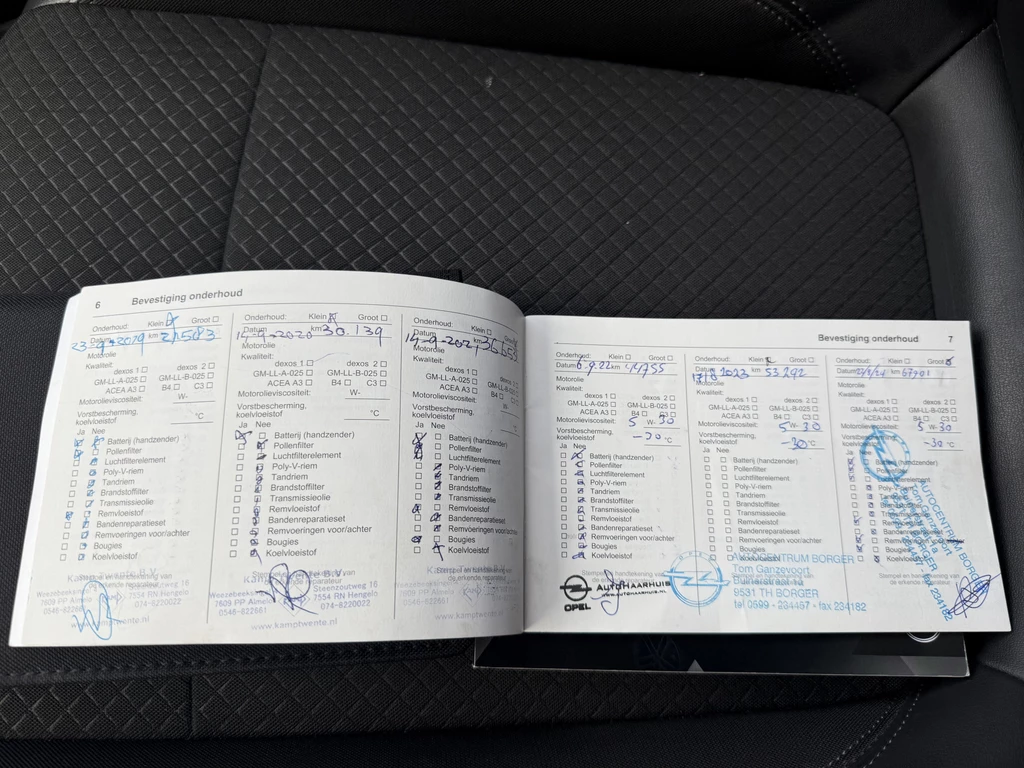 6 Bevestiging onderhoud
Onderhoud: Klein Groot
Datum 23-9-2019 km 21583
Motorolie
Kwaliteit:
dexos 1 dexos 2
GM-LL-A-025 GM-LL-B-025
ACEA A3 B4 C3
Motorolieviscositeit: W-
Vorstbescherming,
koelvloeistof °C
Ja Nee
Batterij (handzender)
Pollenfilter
Luchtfilterelement
Poly-V-riem
Tandriem
Brandstoffilter
Transmissieolie
Remvloeistof
Bandenreparatieset
Remvoeringen voor/achter
Bougies
Koelvloeistof
7609 PP Almelo
0546-822661
7554 RN Hengelo
074-8220022
www.kamptwente.nl
Onderhoud: Klein Groot
Datum 14-9-2020 km 30.139
Motorolie
Kwaliteit:
dexos 1 dexos 2
GM-LL-A-025 GM-LL-B-025
ACEA A3 B4 C3
Motorolieviscositeit: W-
Vorstbescherming,
koelvloeistof °C
Ja Nee
Batterij (handzender)
Pollenfilter
Luchtfilterelement
Poly-V-riem
Tandriem
Brandstoffilter
Transmissieolie
Remvloeistof
Bandenreparatieset
Remvoeringen voor/achter
Bougies
Koelvloeistof
7609 PP Almelo
0546-822661
Steenzoutweg 16
7554 RN Hengelo
074-8220022
www.kamptwente.nl
Onderhoud: Klein Groot
Datum 14-9-2021 km
Motorolie
Kwaliteit:
dexos 1 dexos 2
GM-LL-A-025 GM-LL-B-025
ACEA A3 B4
Motorolieviscositeit:
Vorstbescherming,
koelvloeistof °C
Ja Nee
Batterij (handzender)
Pollenfilter
Luchtfilterelement
Poly-V-riem
Tandriem
Brandstoffilter
Transmissieolie
Remvloeistof
Bandenreparatieset
Remvoeringen voor/achter
Bougies
Koelvloeistof
Stempel en handtekening van
de erkende reparateur
Bevestiging onderhoud 7
Onderhoud: Klein Groot
Datum 6.9.22 km
Motorolie
Kwaliteit:
dexos 1 dexos 2
GM-LL-A-025 GM-LL-B-025
ACEA A3 B4 C3
Motorolieviscositeit: 5 W- 30
Vorstbescherming,
koelvloeistof °C
Ja Nee
Batterij (handzender)
Pollenfilter
Luchtfilterelement
Poly-V-riem
Tandriem
Brandstoffilter
Transmissieolie
Remvloeistof
Bandenreparatieset
Remvoeringen voor/achter
Bougies
Koelvloeistof
AUTOHAARHUIS
WWW.AUTOHAARHUIS.NL
OPEL
Onderhoud: Klein Groot
Datum 17/8 2023 km 53292
Motorolie
Kwaliteit:
dexos 1 dexos 2
GM-LL-A-025 GM-LL-B-025
ACEA A3 B4 C3
Motorolieviscositeit: 5 W- 30
Vorstbescherming,
koelvloeistof -30 °C
Ja Nee
Batterij (handzender)
Pollenfilter
Luchtfilterelement
Poly-V-riem
Tandriem
Brandstoffilter
Transmissieolie
Remvloeistof
Bandenreparatieset
Remvoeringen voor/achter
Bougies
Koelvloeistof
AUTOCENTRUM BORGER
Tom Ganzevoort
9531 TH BORGER
tel 0599 - 234457 - fax 234182
Onderhoud: Klein Groot
Datum km
Motorolie
Kwaliteit:
dexos 1 dexos 2
GM-LL-A-025 GM-LL-B-025
ACEA A3 B4 C3
Motorolieviscositeit: 5 W- 30
Vorstbescherming,
koelvloeistof -30 °C
Ja Nee
Batterij (handzender)
Pollenfilter
Remvloeistof
Bougies
Koelvloeistof
Stempel en handtekening van
de erkende reparateur
AUTOCENTRUM BORGER